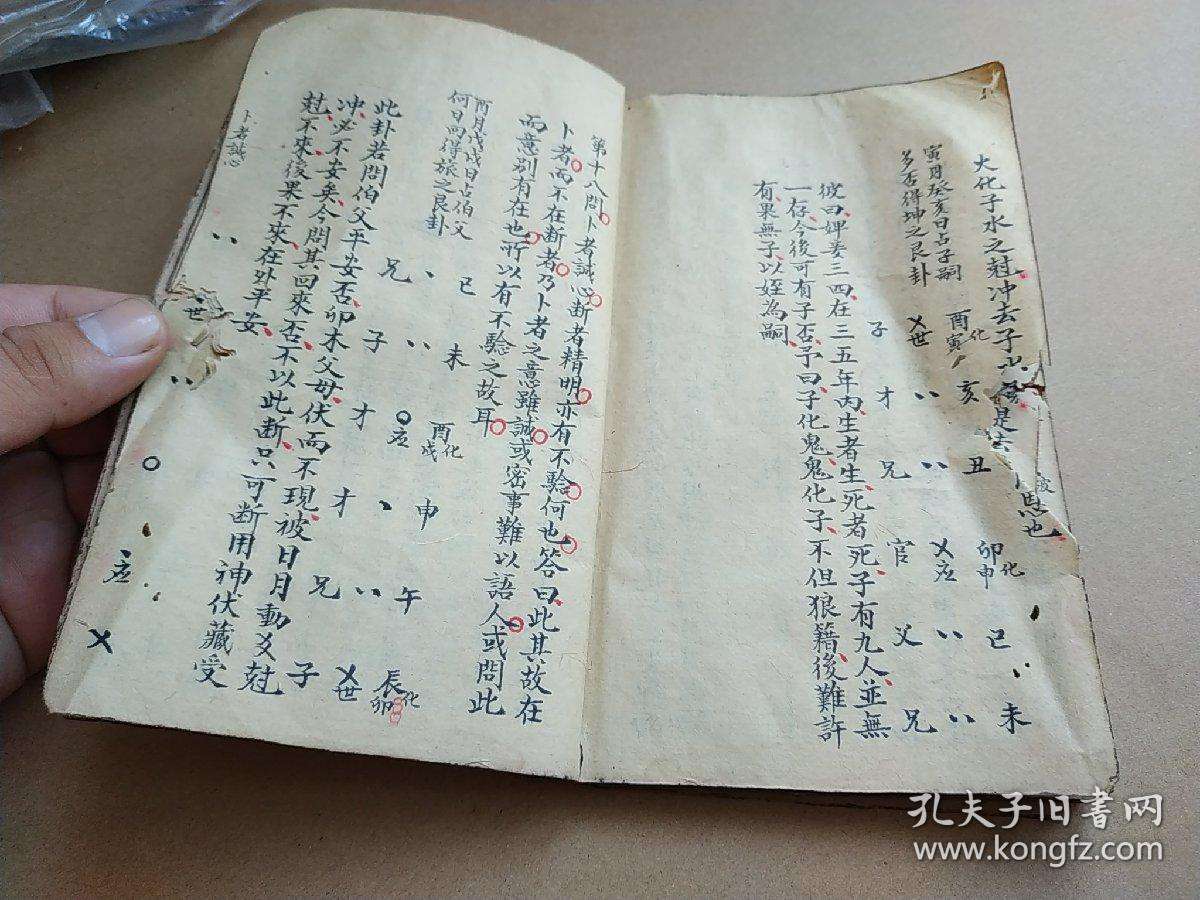 大化子水之尅冲去子
是
恩也
寅月癸亥日占子嗣
多否得坤之艮卦
酉 化
寅
子 乂世
才 、、 亥
兄 、、 丑
官 乂应 卯 化
申
父 、、 巳
兄 、、 未
彼曰、婢妾三四、在三五年内、生者生、死者死、子有九人、並無
一存、今後可有子否、予曰、子化鬼、鬼化子、不但狼籍、後難許
有、果無子、以姪為嗣、
第十八問卜者誠心断者精明亦有不騐何也答曰此其故在
卜者而不在断者乃卜者之意雖誠或密事難以語人或問此
而意别有在也所以有不騐之故耳
酉月戊戌日占伯父
何日回得旅之艮卦
兄 、 巳
子 、、 未
才 〇应 酉 化
戌
才 、 申
兄 、、 午
子 乂世 辰 化
卯
此卦若問伯父平安否、卯木父母、伏而不現、被日月動爻尅
冲、必不安矣、今問其回來否、不以此断、只可断用神伏藏受
尅、不來、後果不來、在外平安、
卜者誠心
、、 世 、、 〇 、 应 乂
孔夫子旧书网
www.kongfz.com